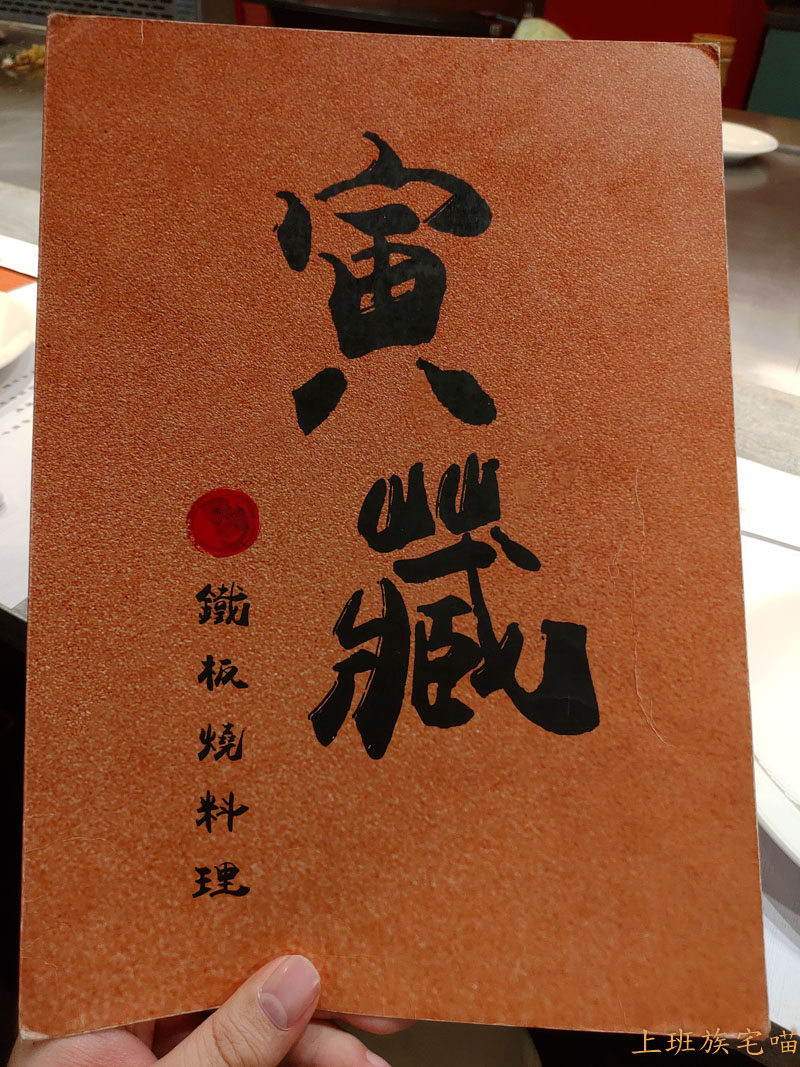 寅藏
鐵板燒料理
上班族宅喵